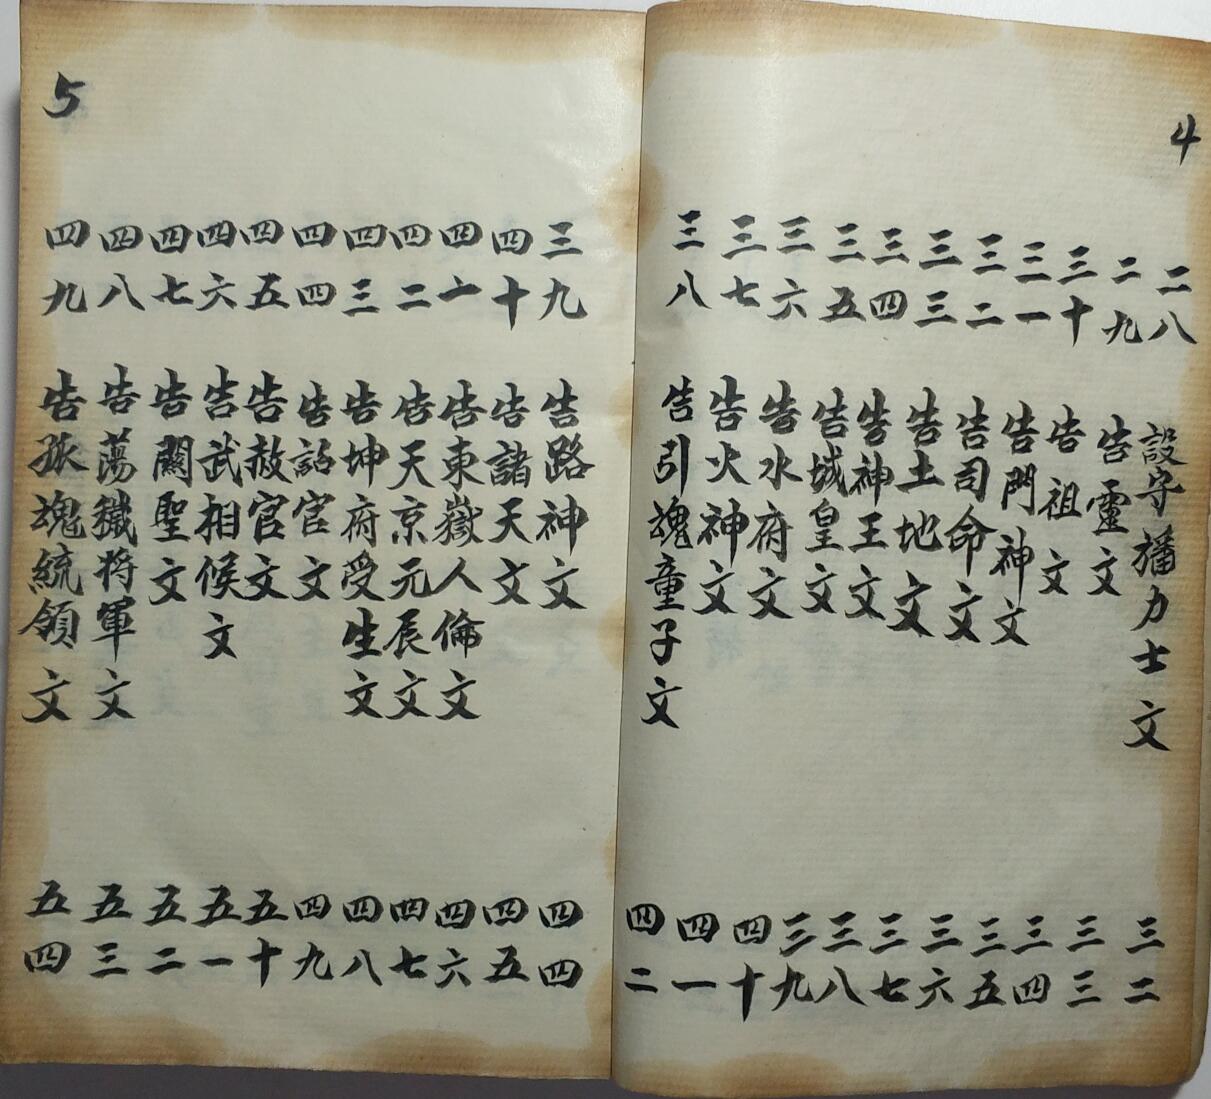 4
二八 設守旛力士文 三二
二九 告靈文 三三
三十 告祖文 三四
三一 告門神文 三五
三二 告司命文 三六
三三 告土地文 三七
三四 告神王文 三八
三五 告城皇文 三九
三六 告水府文 四十
三七 告火神文 四一
三八 告引魂童子文 四二
5
三九 告路神文 四四
四十 告諸天文 四五
四一 告東嶽人倫文 四六
四二 告天京元辰文 四七
四三 告坤府受生文 四八
四四 告詔官文 四九
四五 告赦官文 五十
四六 告武相候文 五一
四七 告關聖文 五二
四八 告蕩穢将軍文 五三
四九 告孤魂統領文 五四